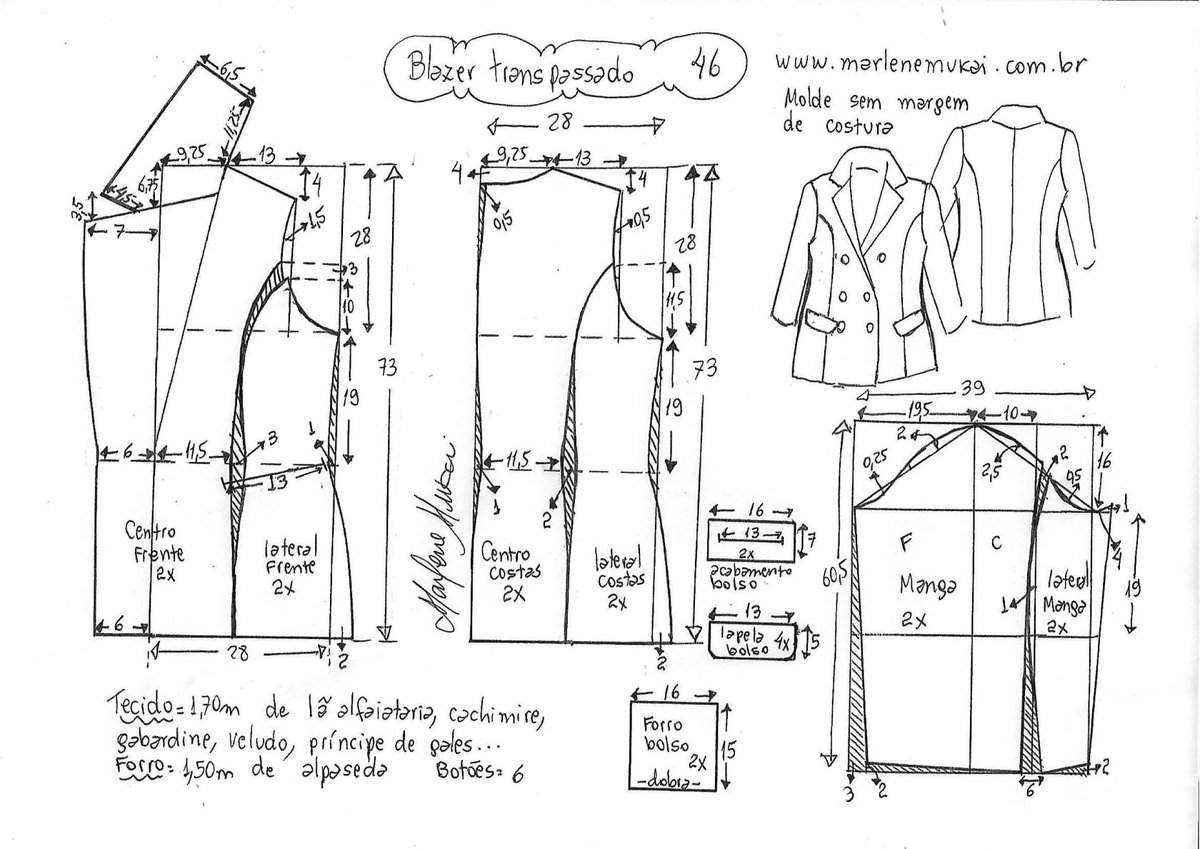 Blazer transpassado 46
www.marlenemukai.com.br
Molde sem margem
de costura
6,5
11,25
9,25
13
4,5
6,75
3,5
7
4
1,5
28
3
10
73
19
6
11,5
3
1
13
Centro
Frente
2x
lateral
Frente
2x
6
28
2
28
9,25
13
4
4
0,5
0,5
28
11,5
73
19
11,5
1
2
Centro
costas
2x
lateral
costas
2x
2
Marlene Mukai
16
13
2x
7
acabamento
bolso
13
lapela
bolso 4x
5
16
Forro
bolso
2x
-dobra-
15
39
19,5
10
2
0,25
2,5
2
0,5
16
1
4
60,5
F
C
Manga
2x
lateral
Manga
2x
1
19
3
2
6
2
Tecido= 1,70m de lã alfaiataria, cachimire,
gabardine, veludo, príncipe de gales...
Forro= 1,50m de alpaseda Botões= 6